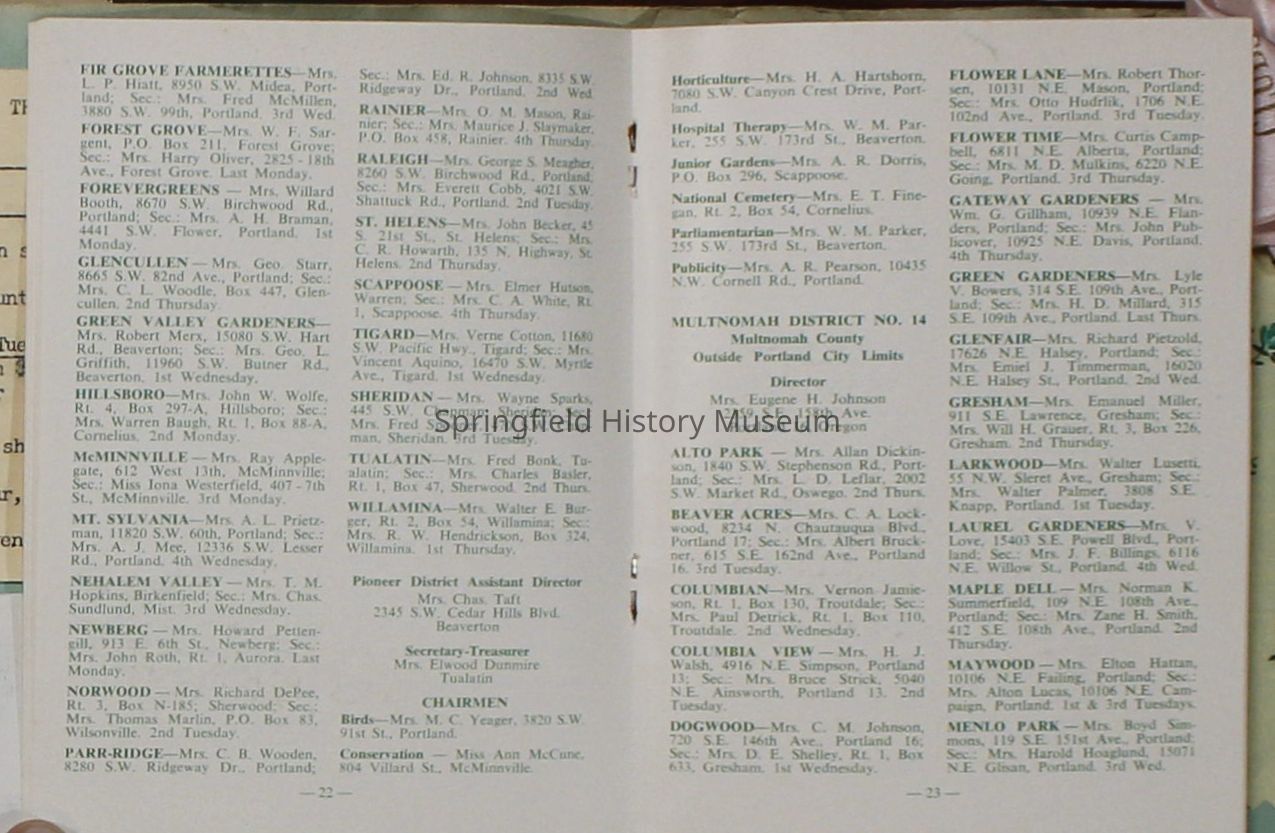 FIR GROVE FARMERETTES—Mrs.
L. P. Hiatt, 8950 S.W. Midea, Port-
land; Sec.: Mrs. Fred McMillen,
3880 S.W. 99th, Portland. 3rd Wed.
FOREST GROVE—Mrs. W. F. Sar-
gent, P.O. Box 211, Forest Grove;
Sec.: Mrs. Harry Oliver, 2825 - 18th
Ave., Forest Grove. Last Monday.
FOREVERGREENS — Mrs. Willard
Booth, 8670 S.W. Birchwood Rd.,
Portland; Sec.: Mrs. A. H. Braman,
4441 S.W. Flower, Portland. 1st
Monday.
GLENCULLEN — Mrs. Geo. Starr,
8665 S.W. 82nd Ave., Portland; Sec.:
Mrs. C. L. Woodle, Box 447, Glen-
cullen. 2nd Thursday.
GREEN VALLEY GARDENERS—
Mrs. Robert Merx, 15080 S.W. Hart
Rd., Beaverton; Sec.: Mrs. Geo. L.
Griffith, 11960 S.W. Butner Rd.,
Beaverton. 1st Wednesday.
HILLSBORO—Mrs. John W. Wolfe,
Rt. 4, Box 297-A, Hillsboro; Sec.:
Mrs. Warren Baugh, Rt. 1, Box 88-A,
Cornelius. 2nd Monday.
McMINNVILLE — Mrs. Ray Apple-
gate, 612 West 13th, McMinnville;
Sec.: Miss Iona Westerfield, 407 - 7th
St., McMinnville. 3rd Monday.
MT. SYLVANIA—Mrs. A. L. Prietz-
man, 11820 S.W. 60th, Portland; Sec.:
Mrs. A. J. Mee, 12336 S.W. Lesser
Rd., Portland. 4th Wednesday.
NEHALEM VALLEY — Mrs. T. M.
Hopkins, Birkenfield; Sec.: Mrs. Chas.
Sundlund, Mist. 3rd Wednesday.
NEWBERG — Mrs. Howard Petten-
gill, 913 E. 6th St., Newberg; Sec.:
Mrs. John Roth, Rt. 1, Aurora. Last
Monday.
NORWOOD — Mrs. Richard DePee,
Rt. 3, Box N-185; Sherwood; Sec.:
Mrs. Thomas Marlin, P.O. Box 83,
Wilsonville. 2nd Tuesday.
PARR-RIDGE—Mrs. C. B. Wooden,
8280 S.W. Ridgeway Dr., Portland;
Sec.: Mrs. Ed. R. Johnson, 8335 S.W.
Ridgeway Dr., Portland. 2nd Wed.
RAINIER—Mrs. O. M. Mason, Rai-
nier; Sec.: Mrs. Maurice J. Slaymaker,
P.O. Box 458, Rainier. 4th Thursday.
RALEIGH—Mrs. George S. Meagher,
8260 S.W. Birchwood Rd., Portland;
Sec.: Mrs. Everett Cobb, 4021 S.W.
Shattuck Rd., Portland. 2nd Tuesday.
ST. HELENS—Mrs. John Becker, 45
S. 21st St., St. Helens; Sec.: Mrs.
C. R. Howarth, 135 N. Highway, St.
Helens. 2nd Thursday.
SCAPPOOSE — Mrs. Elmer Hutson,
Warren; Sec.: Mrs. C. A. White, Rt.
1, Scappoose. 4th Thursday.
TIGARD—Mrs. Verne Cotton, 11680
S.W. Pacific Hwy., Tigard; Sec.: Mrs.
Vincent Aquino, 16470 S.W. Myrtle
Ave., Tigard. 1st Wednesday.
SHERIDAN — Mrs. Wayne Sparks,
445 S.W.
Mrs. Fred
man, Sheridan. 3rd Tuesday.
TUALATIN — Mrs. Fred Bonk, Tu-
alatin; Sec.: Mrs. Charles Basler,
Rt. 1, Box 47, Sherwood. 2nd Thurs.
WILLAMINA—Mrs. Walter E. Bur-
ger, Rt. 2, Box 54, Willamina; Sec.:
Mrs. R. W. Hendrickson, Box 324,
Willamina. 1st Thursday.
Pioneer District Assistant Director
Mrs. Chas. Taft
2345 S.W. Cedar Hills Blvd.
Beaverton
Secretary-Treasurer
Mrs. Elwood Dunmire
Tualatin
CHAIRMEN
Birds—Mrs. M. C. Yeager, 3820 S.W.
91st St., Portland.
Conservation — Miss Ann McCune,
804 Villard St., McMinnville.
— 22 —
Horticulture—Mrs. H. A. Hartshorn,
7080 S.W. Canyon Crest Drive, Port-
land.
Hospital Therapy—Mrs. W. M. Par-
ker, 255 S.W. 173rd St., Beaverton.
Junior Gardens—Mrs. A. R. Dorris,
P.O. Box 296, Scappoose.
National Cemetery—Mrs. E. T. Fine-
gan, Rt. 2, Box 54, Cornelius.
Parliamentarian—Mrs. W. M. Parker,
255 S.W. 173rd St., Beaverton.
Publicity—Mrs. A. R. Pearson, 10435
N.W. Cornell Rd., Portland.
MULTNOMAH DISTRICT NO. 14
Multnomah County
Outside Portland City Limits
Director
Mrs. Eugene H. Johnson
S.E. 158th Ave.
Oregon
ALTO PARK — Mrs. Allan Dickin-
son, 1840 S.W. Stephenson Rd., Port-
land; Sec.: Mrs. L. D. Leflar, 2002
S.W. Market Rd., Oswego. 2nd Thurs.
BEAVER ACRES—Mrs. C. A. Lock-
wood, 8234 N. Chautauqua Blvd.,
Portland 17; Sec.: Mrs. Albert Bruck-
ner, 615 S.E. 162nd Ave., Portland
16. 3rd Tuesday.
COLUMBIAN—Mrs. Vernon Jamie-
son, Rt. 1, Box 130, Troutdale; Sec.:
Mrs. Paul Detrick, Rt. 1, Box 110,
Troutdale. 2nd Wednesday.
COLUMBIA VIEW — Mrs. H. J.
Walsh, 4916 N.E. Simpson, Portland
13; Sec.: Mrs. Bruce Strick, 5040
N.E. Ainsworth, Portland 13. 2nd
Tuesday.
DOGWOOD—Mrs. C. M. Johnson,
720 S.E. 146th Ave., Portland 16;
Sec.: Mrs. D. E. Shelley, Rt. 1, Box
633, Gresham. 1st Wednesday.
FLOWER LANE—Mrs. Robert Thor-
sen, 10131 N.E. Mason, Portland;
Sec.: Mrs. Otto Hudrlik, 1706 N.E.
102nd Ave., Portland. 3rd Tuesday.
FLOWER TIME—Mrs. Curtis Camp-
bell, 6811 N.E. Alberta, Portland;
Sec.: Mrs. M. D. Mulkins, 6220 N.E.
Going, Portland. 3rd Thursday.
GATEWAY GARDENERS — Mrs.
Wm. G. Gillham, 10939 N.E. Flan-
ders, Portland; Sec.: Mrs. John Pub-
licover, 10925 N.E. Davis, Portland.
4th Thursday.
GREEN GARDENERS—Mrs. Lyle
V. Bowers, 314 S.E. 109th Ave., Port-
land; Sec.: Mrs. H. D. Millard, 315
S.E. 109th Ave., Portland. Last Thurs.
GLENFAIR—Mrs. Richard Pietzold,
17626 N.E. Halsey, Portland; Sec.:
Mrs. Emiel J. Timmerman, 16020
N.E. Halsey St., Portland. 2nd Wed.
GRESHAM—Mrs. Emanuel Miller,
911 S.E. Lawrence, Gresham; Sec.:
Mrs. Will H. Grauer, Rt. 3, Box 226,
Gresham. 2nd Thursday.
LARKWOOD—Mrs. Walter Lusetti,
55 N.W. Sleret Ave., Gresham; Sec.:
Mrs. Walter Palmer, 3808 S.E.
Knapp, Portland. 1st Tuesday.
LAUREL GARDENERS—Mrs. V.
Love, 15403 S.E. Powell Blvd., Port-
land; Sec.: Mrs. J. F. Billings, 6116
N.E. Willow St., Portland. 4th Wed.
MAPLE DELL — Mrs. Norman K.
Summerfield, 109 N.E. 108th Ave.,
Portland; Sec.: Mrs. Zane H. Smith,
412 S.E. 108th Ave., Portland. 2nd
Thursday.
MAYWOOD — Mrs. Elton Hattan,
10106 N.E. Failing, Portland; Sec.:
Mrs. Alton Lucas, 10106 N.E. Cam-
paign, Portland. 1st & 3rd Tuesdays.
MENLO PARK — Mrs. Boyd Sim-
mons, 119 S.E. 151st Ave., Portland;
Sec.: Mrs. Harold Hoaglund, 15071
N.E. Glisan, Portland. 3rd Wed.
— 23 —
Springfield History Museum